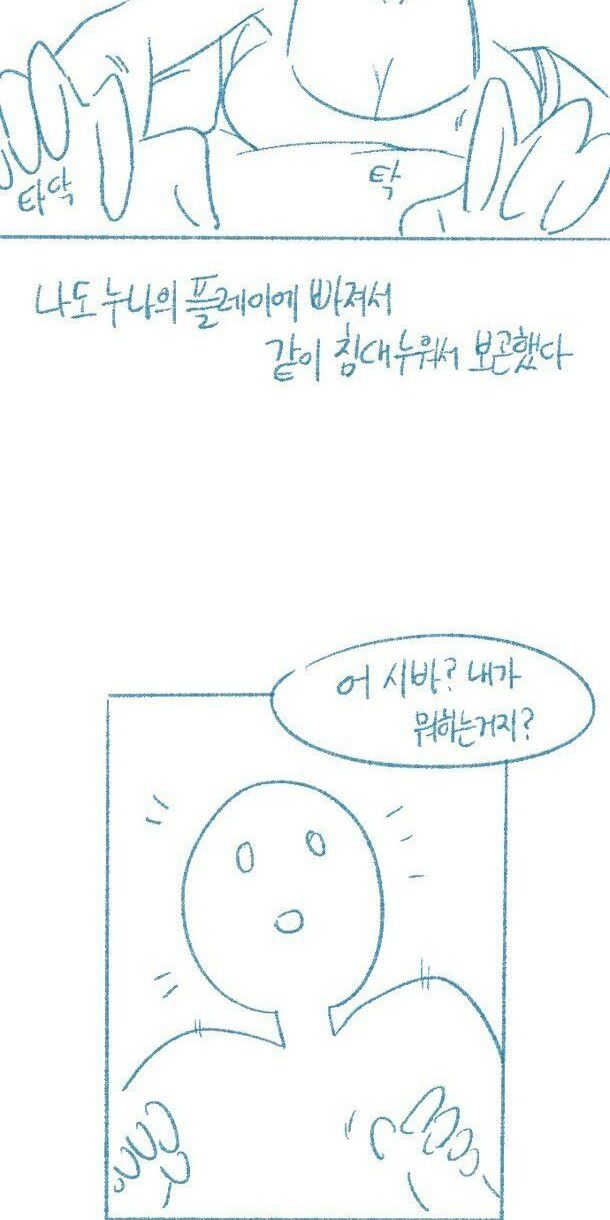 타닥
탁
나도 누나의 플레이에 빠져서
같이 침대누워서 보곤했다
어 시바? 내가
뭐하는거지?